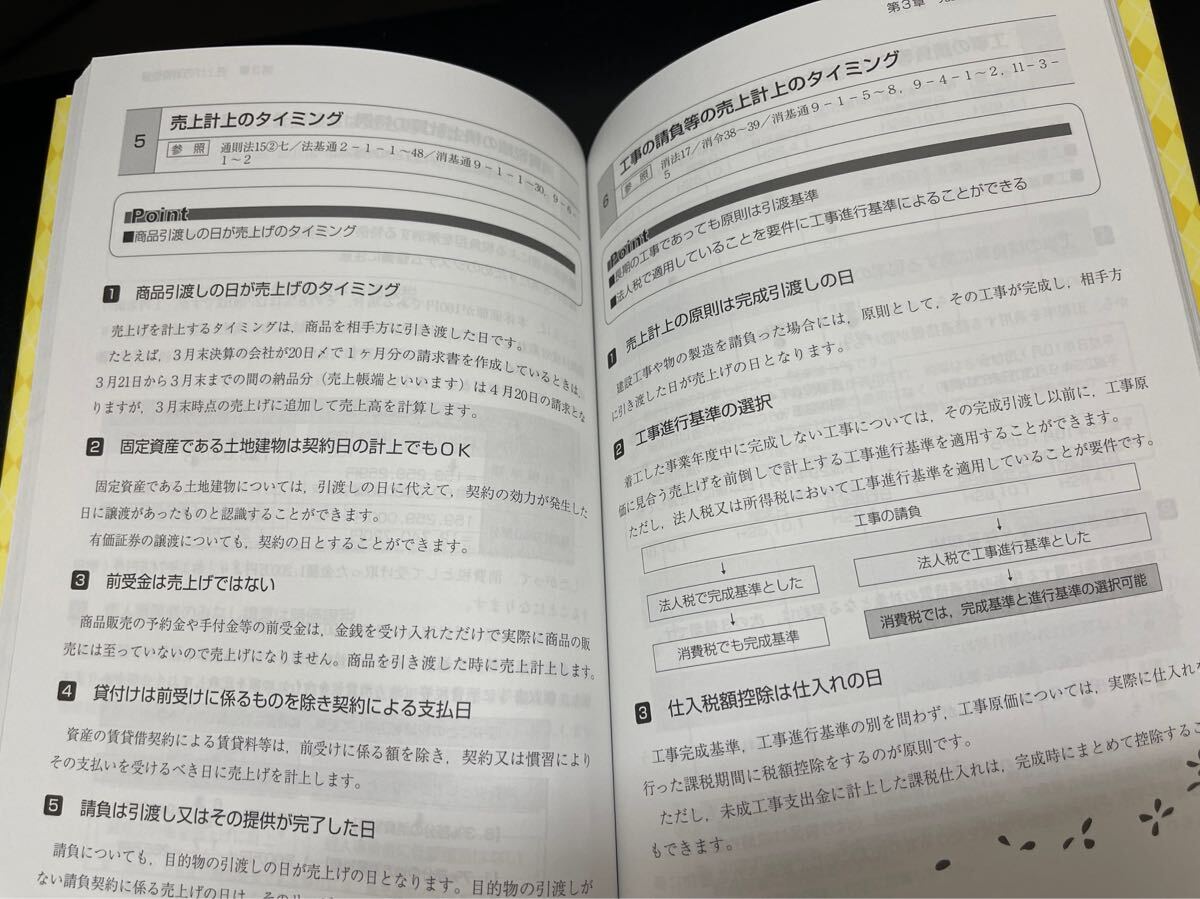 5
売上計上のタイミング
参照 通則法15②七／法基通2－1－1～48／消基通9－1－1～30，9－6－
1～2
Point
■商品引渡しの日が売上げのタイミング
1 商品引渡しの日が売上げのタイミング
売上げを計上するタイミングは，商品を相手方に引き渡した日です。
たとえば，3月末決算の会社が20日〆で1ヶ月分の請求書を作成しているときは，
3月21日から3月末までの間の納品分（売上帳端といいます）は4月20日の請求とな
りますが，3月末時点の売上げに追加して売上高を計算します。
2 固定資産である土地建物は契約日の計上でもOK
固定資産である土地建物については，引渡しの日に代えて，契約の効力が発生した
日に譲渡があったものと認識することができます。
有価証券の譲渡についても，契約の日とすることができます。
3 前受金は売上げではない
商品販売の予約金や手付金等の前受金は，金銭を受け入れただけで実際に商品の販
売には至っていないので売上げになりません。商品を引き渡した時に売上計上します。
4 貸付けは前受けに係るものを除き契約による支払日
資産の賃貸借契約による賃貸料等は，前受けに係る額を除き，契約又は慣習により
その支払いを受けるべき日に売上げを計上します。
5 請負は引渡し又はその提供が完了した日
請負についても，目的物の引渡しの日が売上げの日となります。目的物の引渡しが
ない請負契約に係る売上げの日は，その
第3章
6
工事の請負等の売上計上のタイミング
参照 消法17／消令38～39／消基通9－1－5～8，9－4－1～2，11－3－
5
Point
■長期の工事であっても原則は引渡基準
■法人税で適用していることを要件に工事進行基準によることができる
1 売上計上の原則は完成引渡しの日
建設工事や物の製造を請負った場合には，原則として，その工事が完成し，相手方
に引き渡した日が売上げの日となります。
2 工事進行基準の選択
着工した事業年度中に完成しない工事については，その完成引渡し以前に，工事原
価に見合う売上げを前倒しで計上する工事進行基準を適用することができます。
ただし，法人税又は所得税において工事進行基準を適用していることが要件です。
工事の請負
↓ ↓
法人税で完成基準とした 法人税で工事進行基準とした
↓ ↓
消費税でも完成基準 消費税では，完成基準と進行基準の選択可能
3 仕入税額控除は仕入れの日
工事完成基準，工事進行基準の別を問わず，工事原価については，実際に仕入れを
行った課税期間に税額控除をするのが原則です。
ただし，未成工事支出金に計上した課税仕入れは，完成時にまとめて控除するこ
もできます。